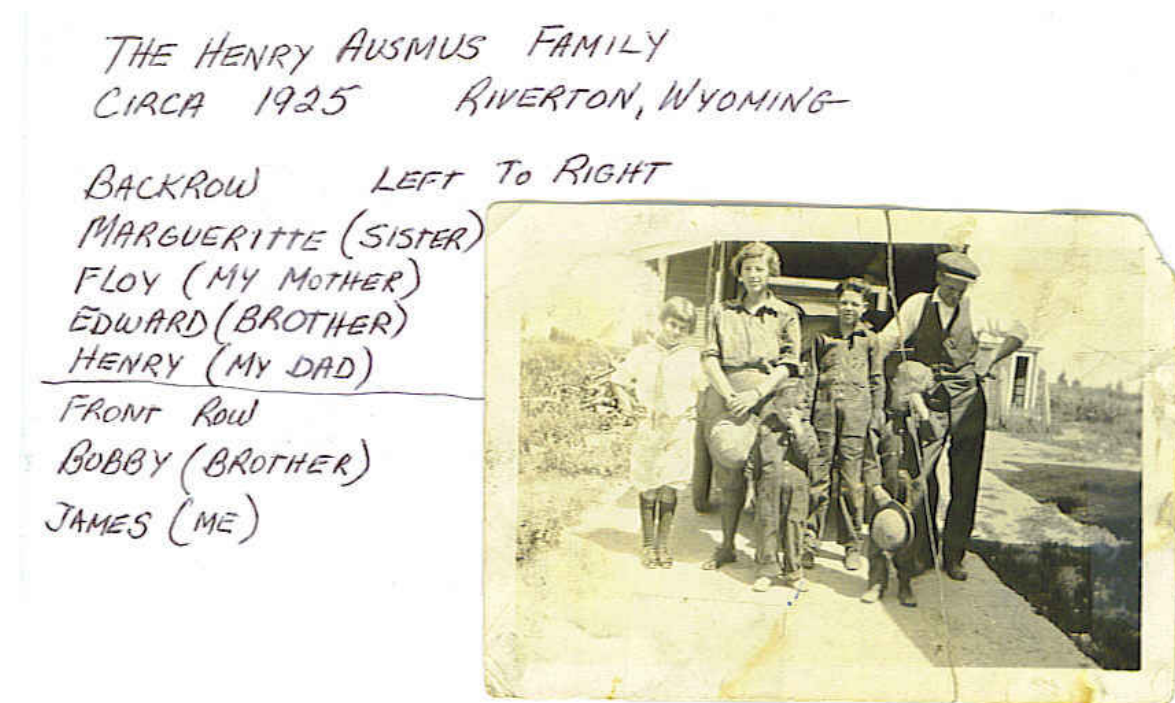 THE HENRY AUSMUS FAMILY
CIRCA 1925 RIVERTON, WYOMING
BACKROW LEFT TO RIGHT
MARGUERITTE (SISTER)
FLOY (MY MOTHER)
EDWARD (BROTHER)
HENRY (MY DAD)
FRONT ROW
BOBBY (BROTHER)
JAMES (ME)